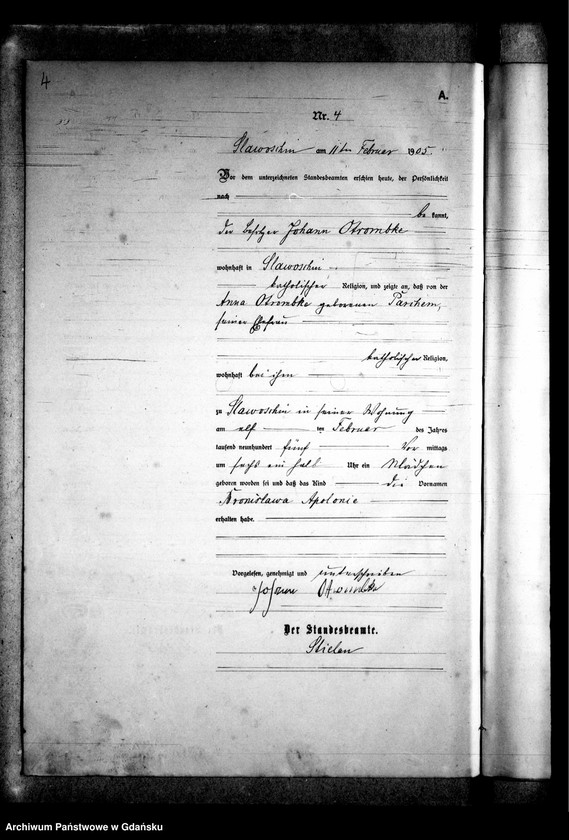 4
A.
Nr. 4
Slawoschin am 11ten Februar 1905.
Vor dem unterzeichneten Standesbeamten erschien heute, der Persönlichkeit
nach
be kannt,
der Besitzer Johann Otrombke
wohnhaft in Slawoschin
katholischer Religion, und zeigte an, daß von der
Anna Otrombke geborenen Parchem,
seiner Ehefrau
katholischer Religion,
wohnhaft bei ihm
zu Slawoschin in seiner Wohnung
am elf ten Februar des Jahres
tausend neunhundert fünf Vor mittags
um sechs ein halb Uhr ein Mädchen
geboren worden sei und daß das Kind die Vornamen
Bronislawa Apolonie
erhalten habe.
Vorgelesen, genehmigt und unterschrieben
Johann Otrombke
Der Standesbeamte.
Archiwum Państwowe w Gdańsku